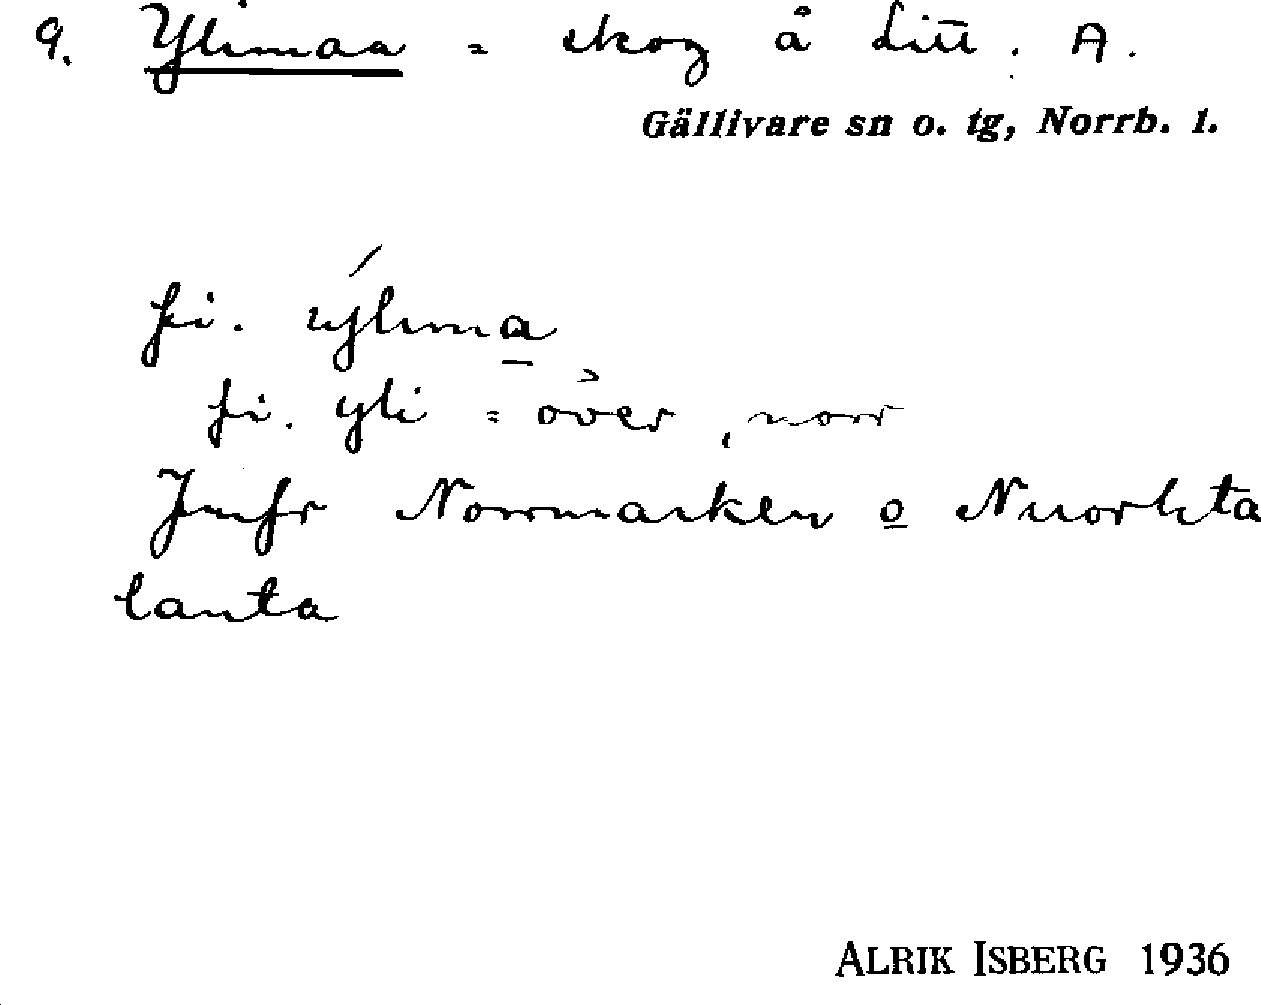 9. Ylimaa = skog å Litt. A.
Gällivare sn o. tg, Norrb. l.
fi. ýlima
fi. yli = över, norr
Jmfr Norrmarken o Nuorhta
lanta
ALRIK ISBERG 1936